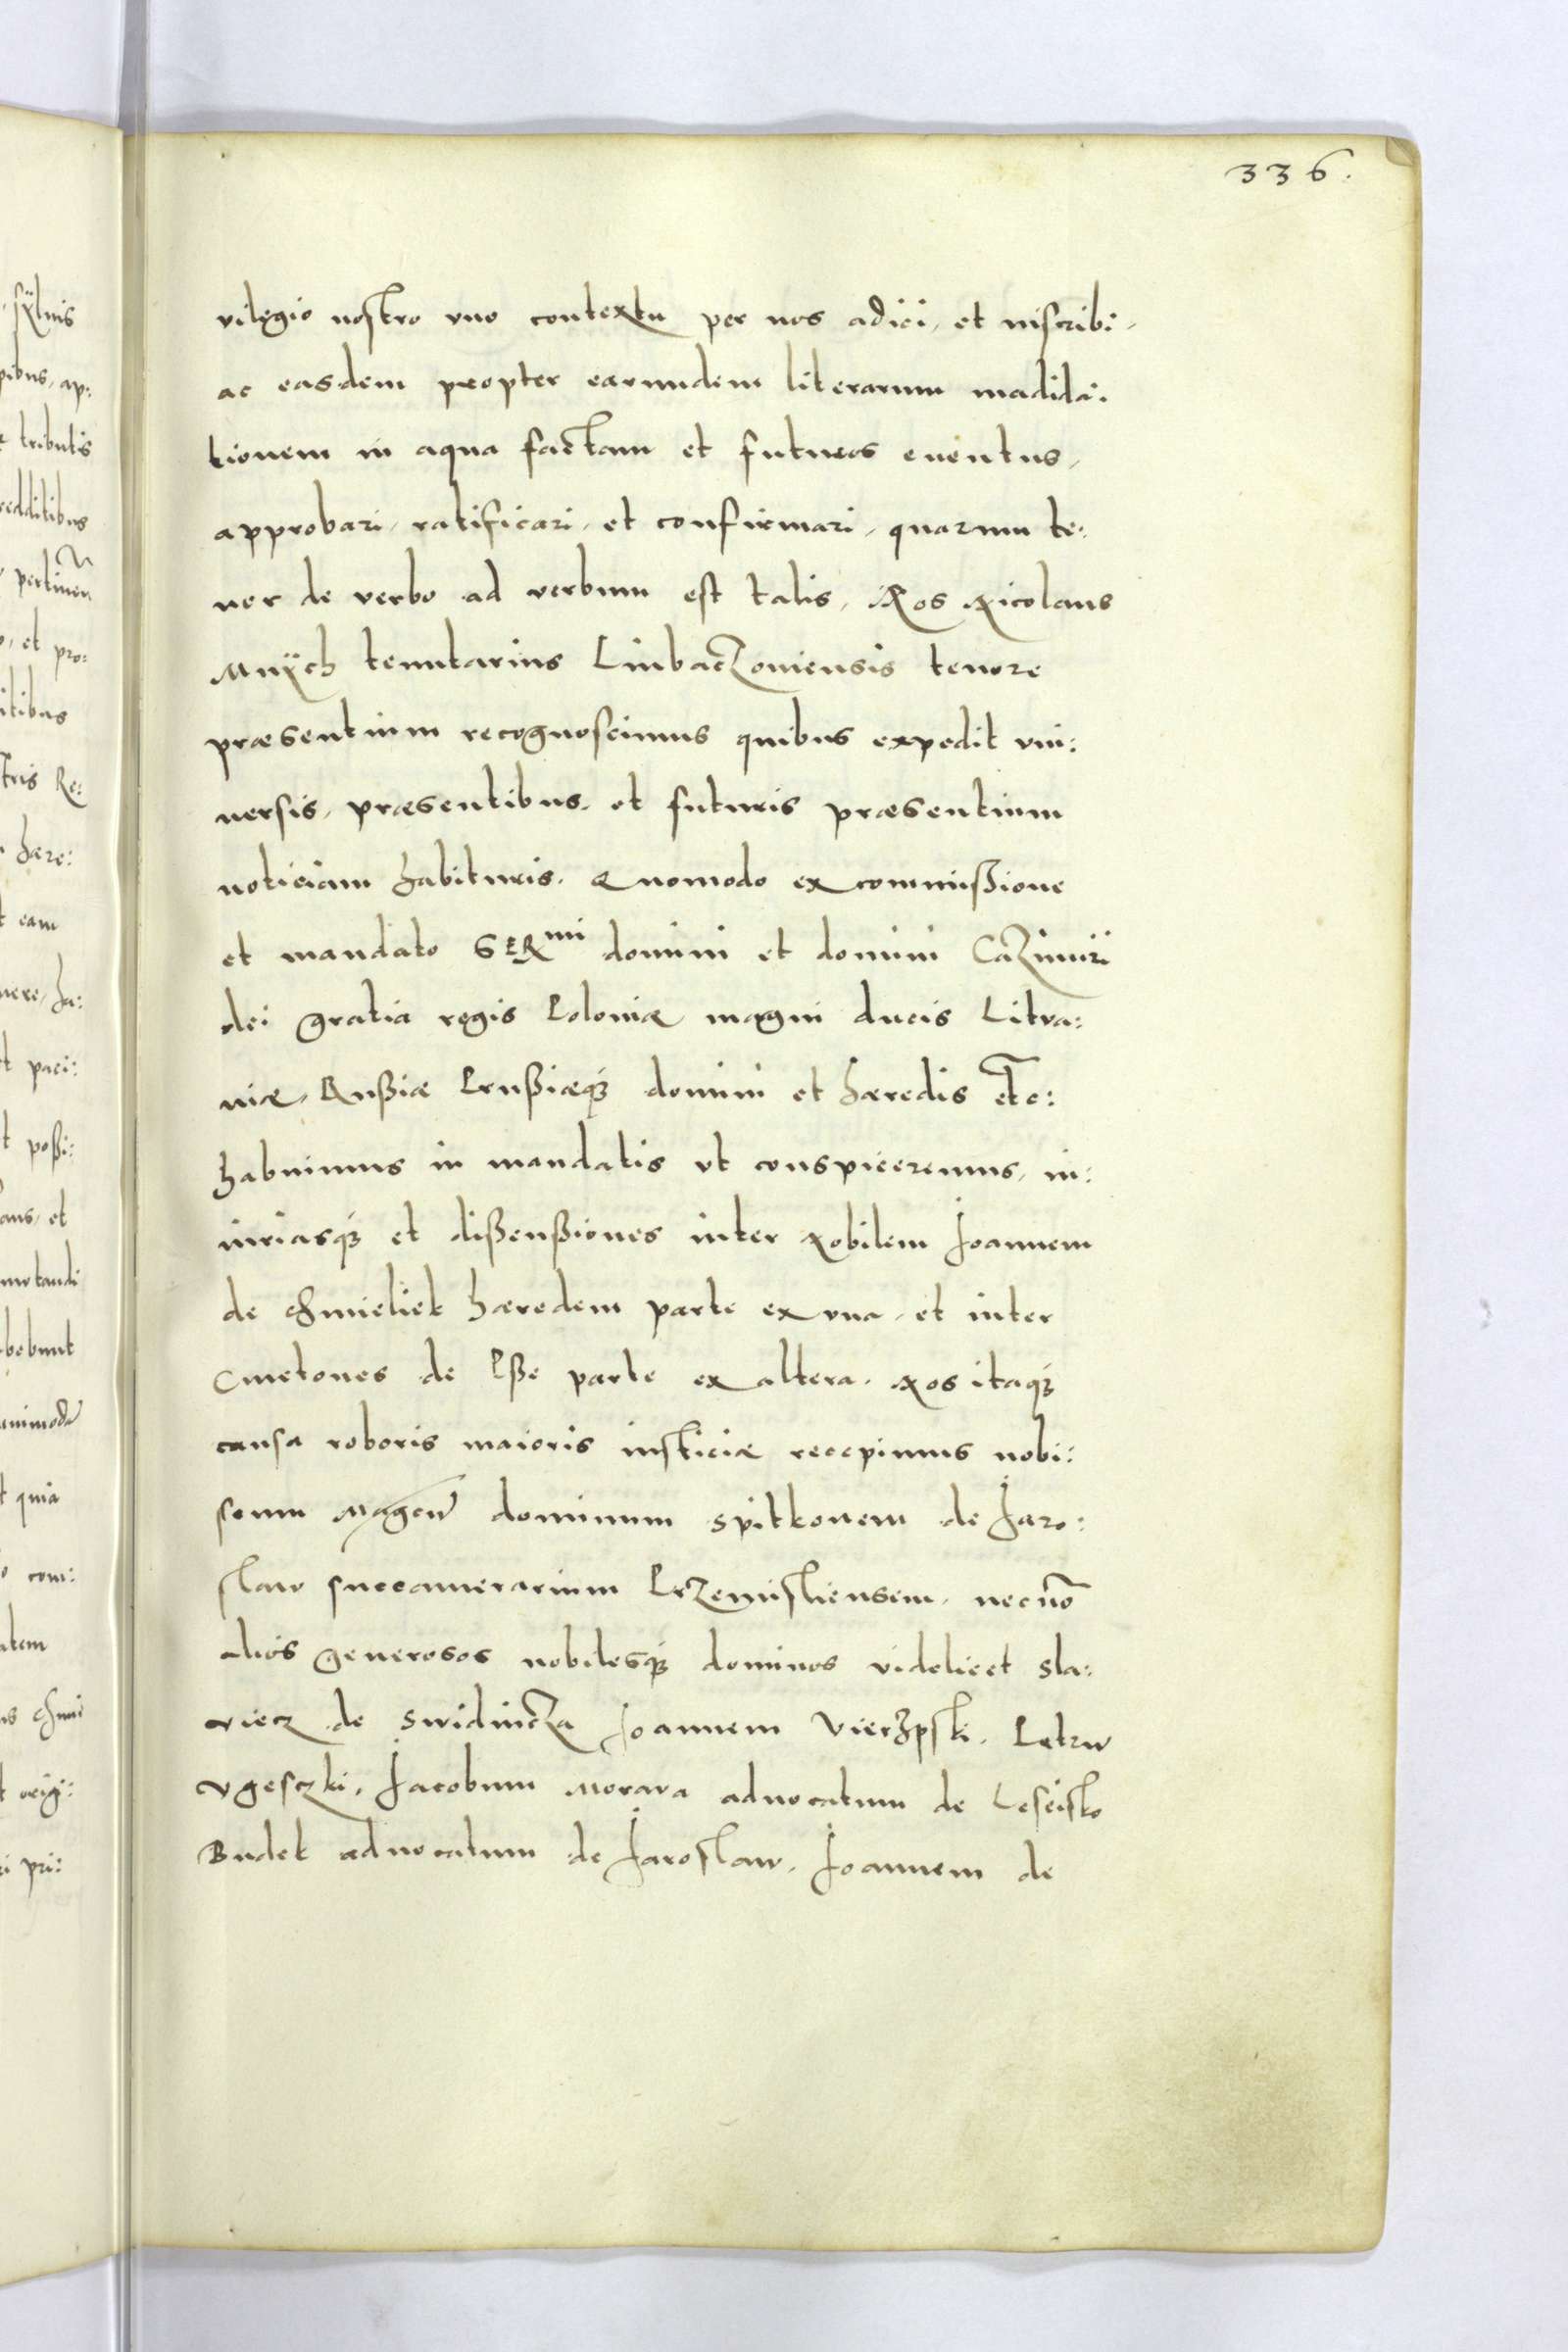 336.
vilegio nostro vno contextu per nos adici, et inscribi,
ac easdem propter earundem literarum madida:
tionem in aqua factam et futuros euentus,
approbari, ratificari, et confirmari, quarum te:
nor de verbo ad verbum est talis, Nos Nicolaus
Mnÿch tenutarius Liubaczoniensis tenore
præsentium recognoscimus quibus expedit vni:
uersis, præsentibus, et futuris præsentium
noticiam habituris. Quomodo ex commißione
et mandato SERmi domini et domini Cazimiri
dei gratia regis Poloniæ magni ducis Litua:
niæ, Rußiæ Prußiæq; domini et hæredis etc:
habuimus in mandatis vt conspiceremus, in:
iuriasq; et dißenßiones inter Nobilem Joannem
de Chmieliek hæredem parte ex vna, et inter
Cmetones de Lße parte ex altera. Nos itaq;
causa roboris maioris iusticiæ recepimus nobi:
scum Magcũ dominum Spitkonem de Jaro:
slaw succamerarium Przemisliensem, necnõ
alios generosos nobilesq; dominos videlicet Sla:
viecz de Swidnicza Joannem Vierzpski, Petrũ
Vgesczki, Jacobum Morava aduocatum de Lescisko
Budek aduocatum de Jaroslaw, Joannem de
sÿluis
pibus, ap:
tributis
redditibus
pertinẽn
et pro:
itibus
Re:
hære:
eam
paci:
poßi:
ans, et
mutandi
bebunt
quia
com:
orig:
pri: